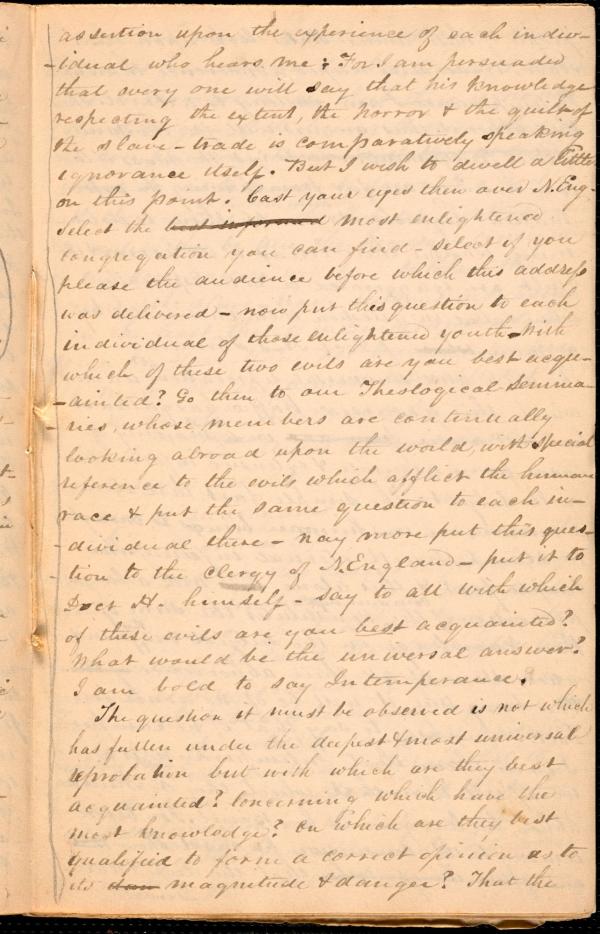 assertion upon the experience of each indiv-
-idual who hears me; For I am persuaded
that every one will say that his knowledge
respecting the extent, the horror & the guilt of
the slave-trade is comparatively speaking
ignorance itself. But I wish to dwell a little
on this point. Cast your eyes then over N.Eng-
Select the best informed most enlightened
congregation you can find - select if you
please the audience before which this address
was delivered - now put this question to each
individual of those enlightened youth - With
which of these two evils are you best acqu-
-ainted? Go then to our Theological Semina-
-ries, whose members are continually
looking abroad upon the world, with special
reference to the evils which afflict the human
race & put the same question to each in-
-dividual there - nay more put this ques-
-tion to the clergy of N.England - put it to
Doct H. himself - say to all with which
of these evils are you best acquainted?
What would be the universal answer?
I am bold to say Intemperance.
The question it must be observed is not which
has fallen under the deepest & most universal
reprobation but with which are they best
acquainted? Concerning which have the
most knowledge? On which are they best
qualified to form a correct opinion as to
its dan magnitude & danger? That the